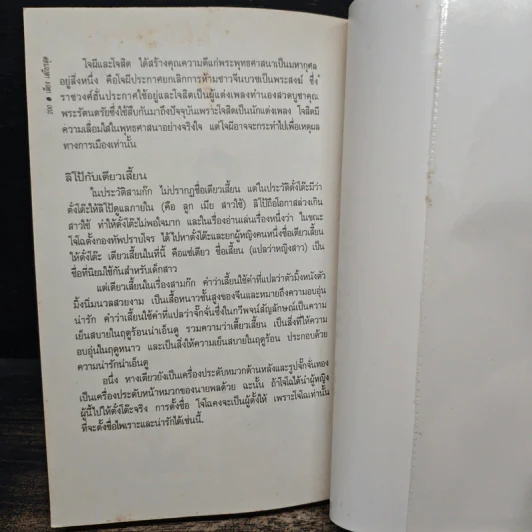 โจผีและโจสิด ได้สร้างคุณความดีแก่พระพุทธศาสนาเป็นมหากุศล
อยู่สิ่งหนึ่ง คือโจผีประกาศยกเลิกการห้ามชาวจีนบวชเป็นพระสงฆ์ ซึ่ง
ราชวงศ์ฮั่นประกาศใช้อยู่และโจสิดเป็นผู้แต่งเพลงทำนองสวดบูชาคุณ
พระรัตนตรัยซึ่งใช้สืบกันมาถึงปัจจุบันเพราะโจสิดเป็นนักแต่งเพลง โจสิดมี
ความเลื่อมใสในพุทธศาสนาอย่างจริงใจ แต่โจผีอาจจะกระทำไปเพื่อเหตุผล
ทางการเมืองเท่านั้น
ลิโป้กับเตียวเสี้ยน
ในประวัติสามก๊ก ไม่ปรากฏชื่อเตียวเสี้ยน แต่ในประวัติตั๋งโต๊ะมีว่า
ตั๋งโต๊ะให้ลิโป้ดูแลภายใน (คือ ลูก เมีย สาวใช้) ลิโป้ถือโอกาสล่วงเกิน
สาวใช้ ทำให้ตั๋งโต๊ะไม่พอใจมาก และในเรื่องอ่านเล่นเรื่องหนึ่งว่า ในขณะ
โจโฉตั้งกองทัพปราบโจร ได้ไปหาตั๋งโต๊ะและยกผู้หญิงคนหนึ่งชื่อเตียวเสี้ยน
ให้ตั๋งโต๊ะ เตียวเสี้ยนในที่นี้ คือแซ่เตียว ชื่อเสี้ยน (แปลว่าหญิงสาว) เป็น
ชื่อที่นิยมใช้กันสำหรับเด็กสาว
แต่เตียวเสี้ยนในเรื่องสามก๊ก คำว่าเสี้ยนใช้คำที่แปลว่าตัวมิ้งหนังตัว
มิ้งนิ่มนวลสวยงาม เป็นเสื้อหนาวชั้นสูงของจีนและหมายถึงความอบอุ่น
น่ารัก คำว่าเสี้ยนใช้คำที่แปลว่าจั๊กจั่นซึ่งในกวีพจน์สัญลักษณ์เป็นความ
เย็นสบายในฤดูร้อนน่าเอ็นดู รวมความว่าเตี้ยวเสี้ยน เป็นสิ่งที่ให้ความ
อบอุ่นในฤดูหนาว และเป็นสิ่งให้ความเย็นสบายในฤดูร้อน ประกอบด้วย
ความน่ารักน่าเอ็นดู
อนึ่ง หางเตียวยังเป็นเครื่องประดับหมวกด้านหลังและรูปจั๊กจั่นทอง
เป็นเครื่องประดับหน้าหมวกของนายพลด้วย ฉะนั้น ถ้าโจโฉได้นำผู้หญิง
ผู้นี้ไปให้ตั๋งโต๊ะจริง การตั้งชื่อ โจโฉคงจะเป็นผู้ตั้งให้ เพราะโจโฉเท่านั้น
ที่จะตั้งชื่อไพเราะและน่ารักได้เช่นนี้.